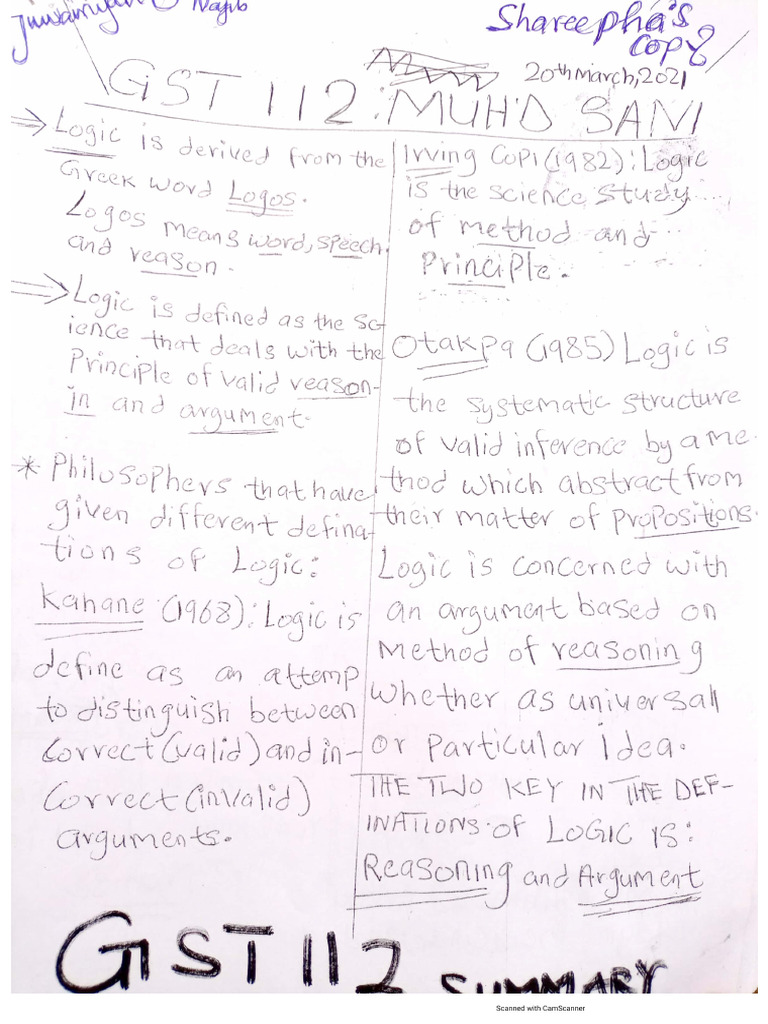 Najib
Shareepha's
Copy
20th March, 2021
GST 112: MUH'D SANI
Logic is derived from the
Greek word Logos.
Logos means word, speech,
and reason.
Logic is defined as the sc-
ience that deals with the
Principle of valid reason-
in and argument.
* Philosophers that have
given different defina-
tions of Logic:
Kahane (1968): Logic is
define as an attemp
to distinguish between
Correct (valid) and in-
Correct (invalid)
arguments.
Irving Copi (1982): Logic
is the science study
of method and
Principle.
Otakpa (1985) Logic is
the systematic structure
of valid inference by a me-
thod which abstract from
their matter of Propositions.
Logic is concerned with
an argument based on
Method of reasoning
whether as universal
or particular idea.
THE TWO KEY IN THE DEF-
INATIONS OF LOGIC IS:
Reasoning and Argument
GST 112 SUMMARY
Scanned with CamScanner